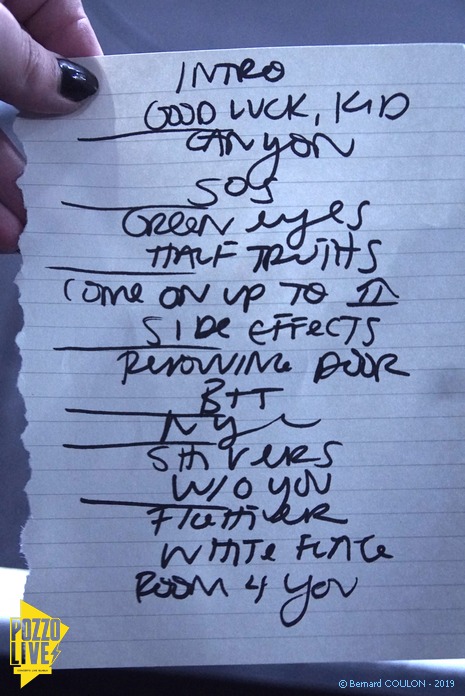 INTRO
GOOD LUCK, KID
CANYON
SOS
GREEN eyes
HALF TRUTHS
COME ON UP TO
SIDE EFFECTS
REVOLVING DOOR
B+T
NYE
SHIVERS
W/O YOU
FIGHTER
WHITE FLAG
ROOM 4 YOU
POZZO
LIVE
© Bernard COULON - 2019